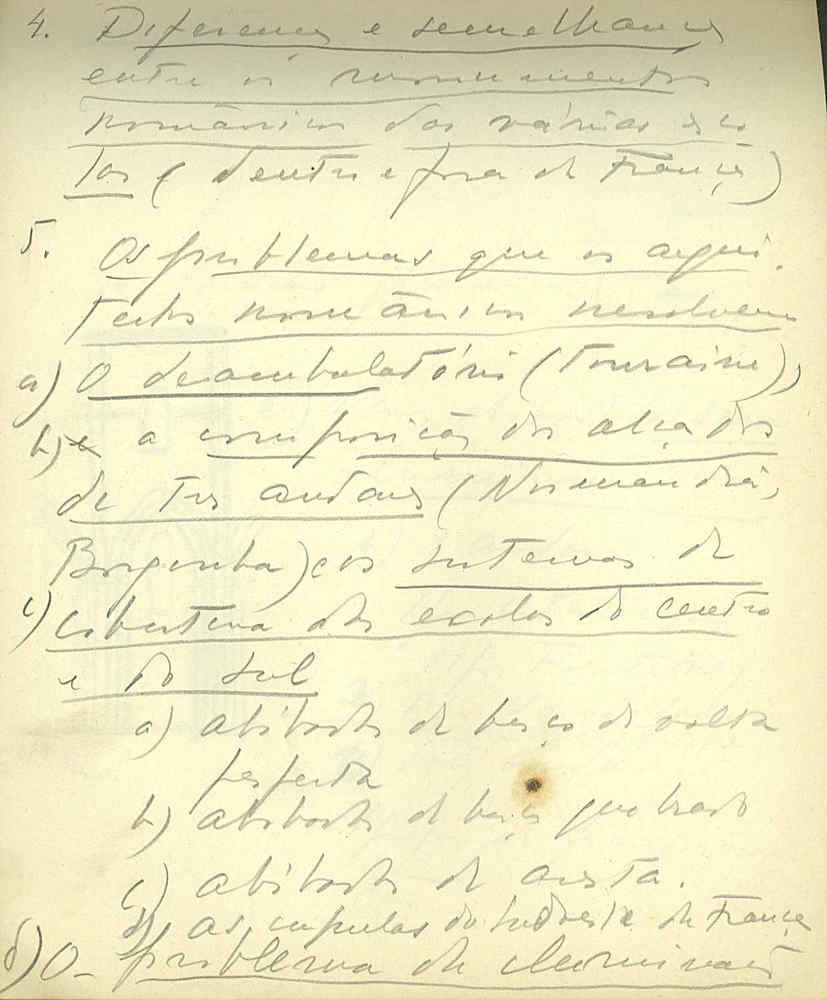 4. Diferenças e semelhanças
entre os monumentos
românicos das várias esco
las (dentro e fora de França)
5. Os problemas que os arqui.
tectos românicos resolvem
a) O deambulatório (Touraine),
b) e a composição dos alçados
de tres andares (Normandia,
Borgonha) e os sistemas de
c) cobertura das escolas do centro
e do sul
a) abóbada de berço de volta
perfeita
b) abóbada de berço quebrado
c) abóbada de aresta.
d) as cupulas do Sudoeste de França
d) O problema da iluminação